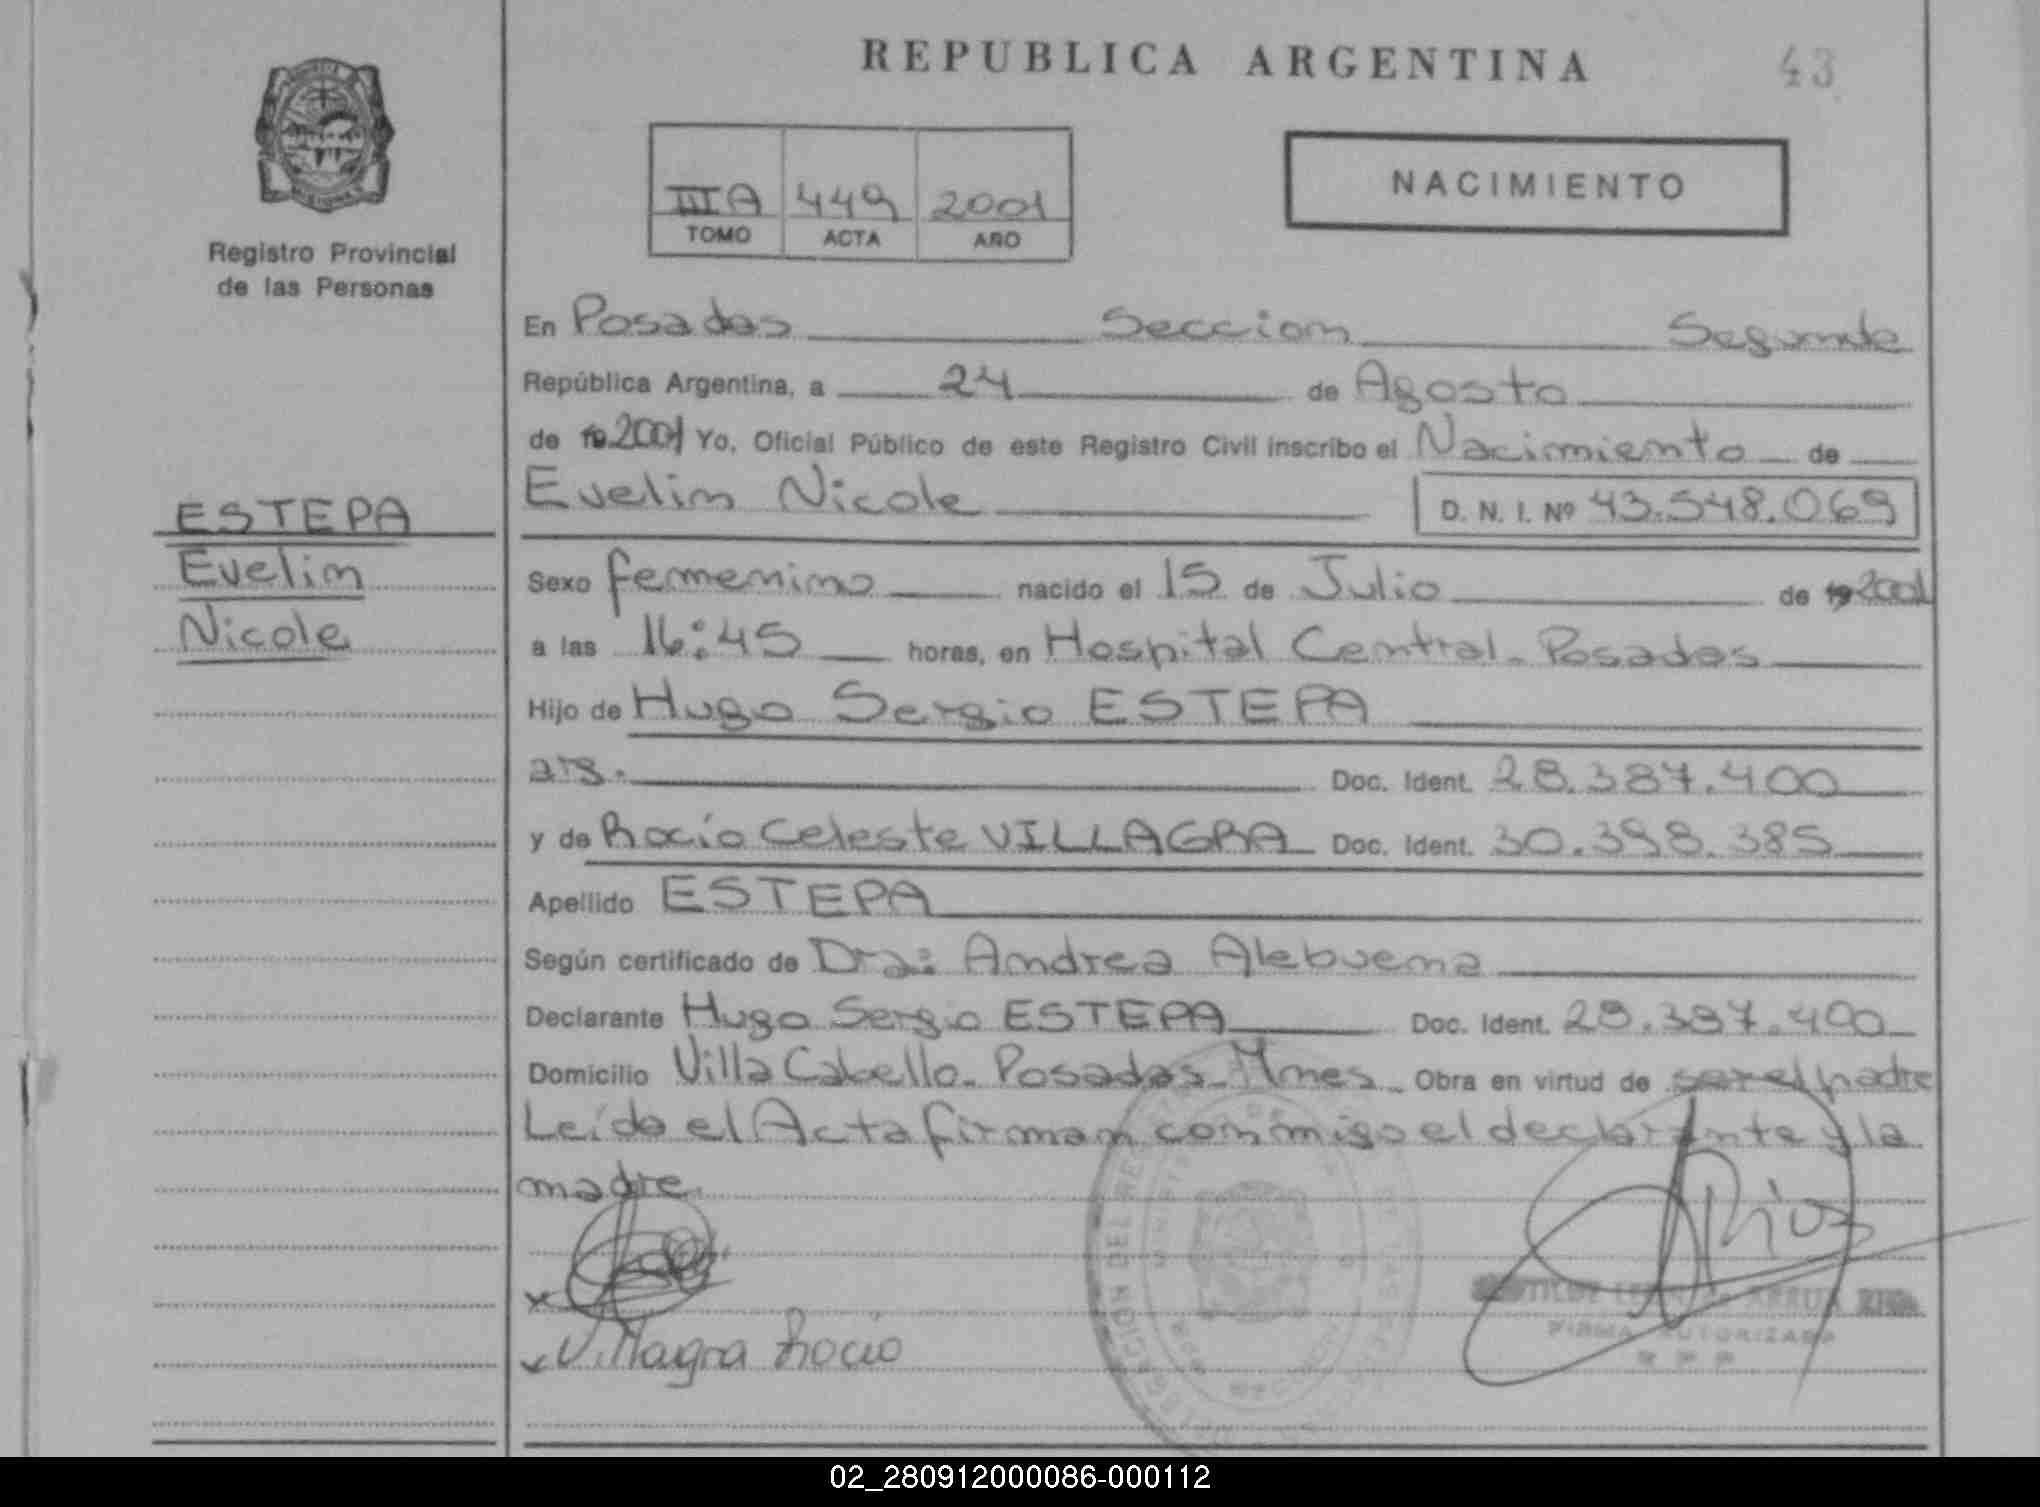 REPUBLICA ARGENTINA
43
IIIA 449 2001
TOMO ACTA AÑO
NACIMIENTO
Registro Provincial
de las Personas
En Posadas Seccion Segunda
República Argentina, a 24 de Agosto
de 19 2001 Yo, Oficial Público de este Registro Civil inscribo el Nacimiento de
Evelin Nicole D. N. I. Nº 43.548.069
ESTEPA
Evelin
Nicole
Sexo femenino nacido el 15 de Julio de 19 2001
a las 16:45 horas, en Hospital Central - Posadas
Hijo de Hugo Sergio ESTEPA
arg. Doc. Ident. 28.387.400
y de Rocío Celeste VILLAGRA Doc. Ident. 30.398.385
Apellido ESTEPA
Según certificado de Dra: Andrea Alebuena
Declarante Hugo Sergio ESTEPA Doc. Ident. 28.387.400
Domicilio Villa Cabello - Posadas - Mnes Obra en virtud de ser el padre
Leída el Acta firman conmigo el declarante y la
madre.
Villagra Rocio
Rios
FIRMA AUTORIZADA
R P P
02_280912000086-000112